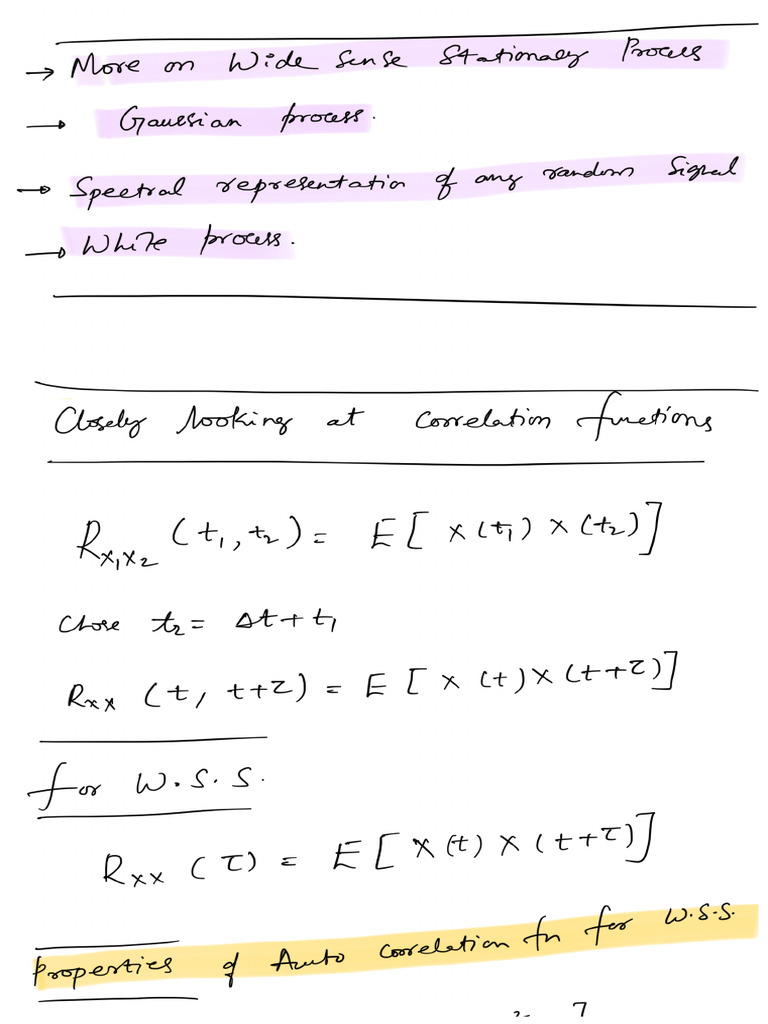 → More on Wide Sense Stationary Process
→ Gaussian process.
→ Spectral representation of any random Signal
→ White process.
Closely looking at correlation functions
R_{X_1X_2} (t_1, t_2) = E[ X(t_1) X(t_2)]
Chose t_2 = Δt + t_1
R_{XX} (t, t+τ) = E [ X (t) X (t+τ)]
for W.S.S.
R_{XX} (τ) = E [ X (t) X (t+τ)]
Properties of Auto correlation fn for W.S.S.